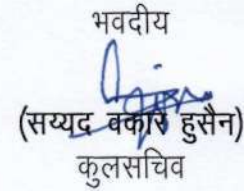 भवदीय
(सय्यद वकार हुसैन)
कुलसचिव